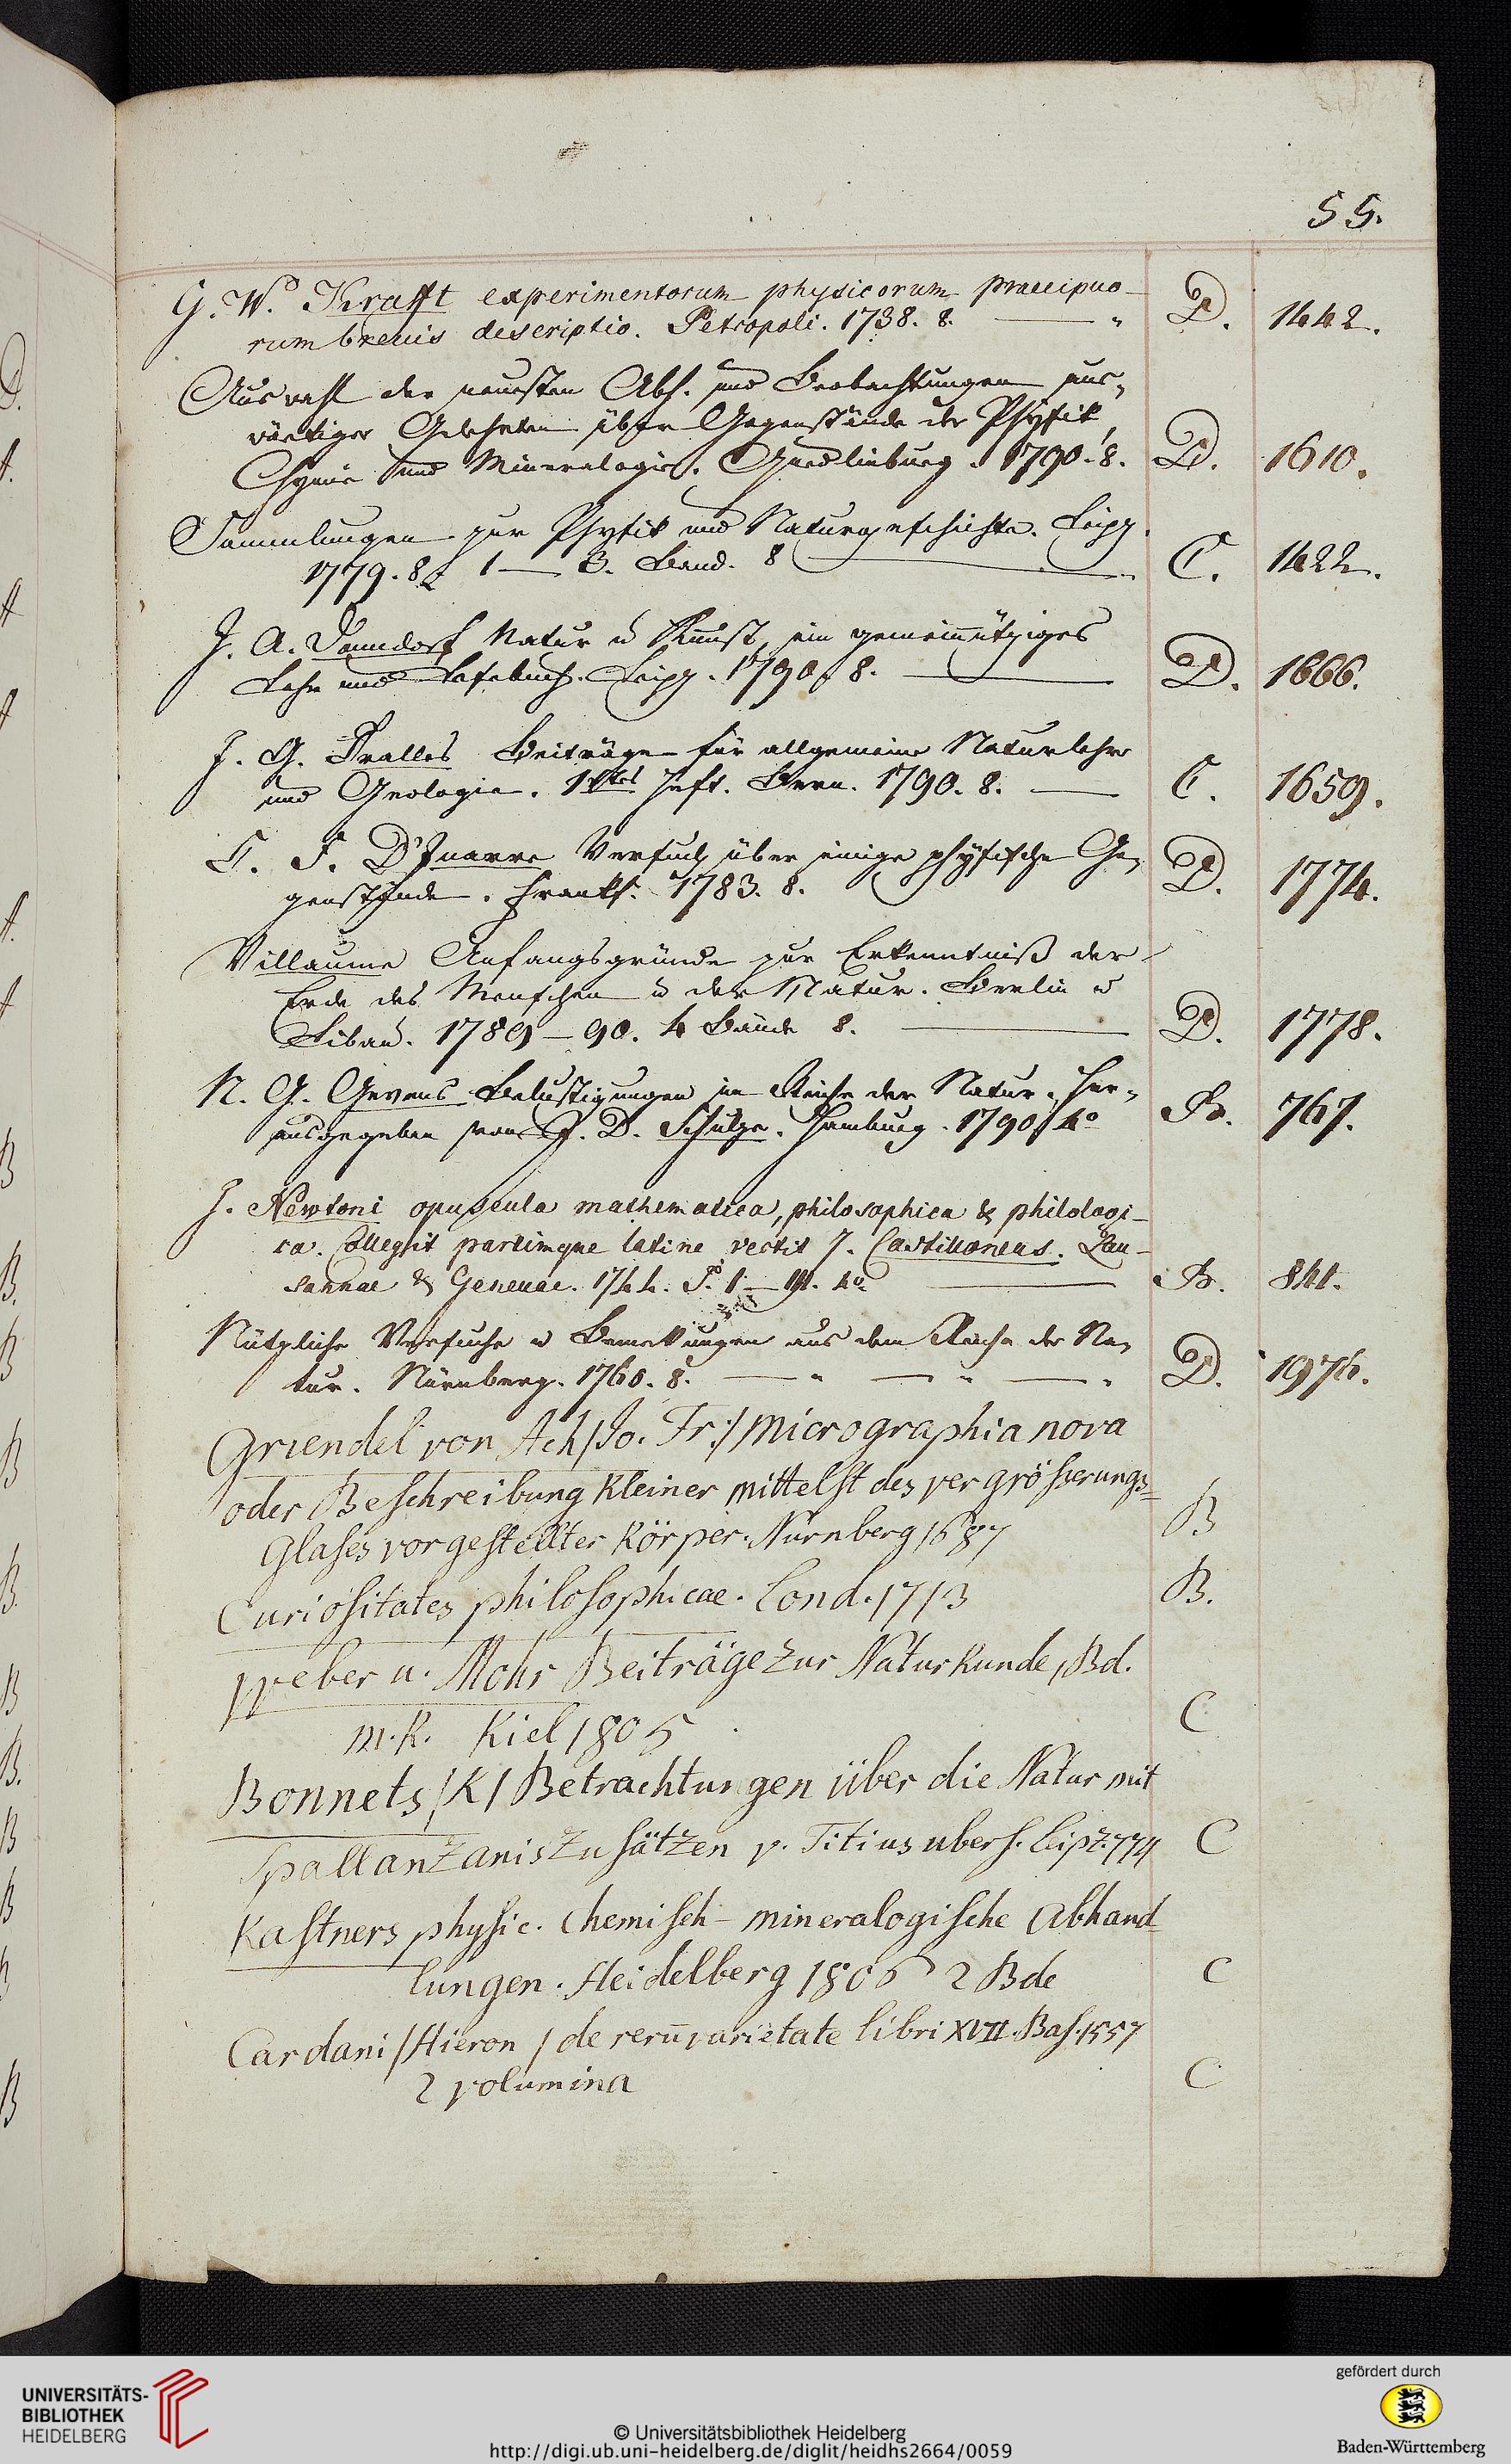 55.
G. W. Krafft experimentorum physicorum praecipuo-
rum brevis descriptio. Petropoli. 1738. 8. — " D. 1442.
Auswahl der neuesten Abh. und Beobachtungen aus-
wärtiger Gelehrten über Gegenstände der Physik,
Chymie und Mineralogie. Quedlinburg. 1790. 8. D. 1610.
Sammlungen zur Physik und Naturgeschichte. Leipz.
1779. 8. 1 — 3. Band. 8 — C. 1422.
J. A. Donndorf Natur u Kunst, ein gemeinnütziges
Lehr und Lesebuch. Leipz. 1790. 8. — D. 1666.
J. G. Tralles Beiträge für allgemeine Naturlehre
und Geologie. 1stes Heft. Bern. 1790. 8. — C. 1659.
C. F. D'Inarre Versuch über einige physische Ge-
genstände. Frankf. 1783. 8. D. 1774.
Villaume Anfangsgründe zur Erkenntniß der
Erde des Menschen u der Natur. Berlin u
Libau. 1789 — 90. 4 Bände 8. — D. 1778.
N. G. Gevens Belustigungen im Reiche der Natur, her-
ausgegeben von J. D. Schulze. Hamburg. 1790. 4o B. 767.
J. Newtoni opuscula mathematica, philosophica & philologi-
ca. Collegit partimque latine vertit J. Castillioneus. Lau-
sannae & Genevae. 1744. T. I — III. 4o. — B. 841.
Nützliche Versuche u Bemerkungen aus dem Reiche der Na-
tur. Nürnberg. 1760. 8. — " — " — " D. 1974.
Griendel von Ach /Jo. Fr:/ Micrographia nova
oder Beschreibung kleiner mittelst des vergrösserungs-
Glases vorgestellter Körper. Nürnberg 1687 B
Curiositates philosophicae. Lond. 1713 B.
Weber u. Mohr Beiträge zur Naturkunde, Bd.
m. K. Kiel 1805 C
Bonnets /K/ Betrachtungen über die Natur mit
Spallanzanis Zusätzen v. Titius übers. Leipz. 774 C
Kastners physic. chemisch-mineralogische Abhand
lungen. Heidelberg 1806 2 Bde C
Cardani /Hieron/ de rerū varietate libri XVII. Bas. 1557
2 volumina C
UNIVERSITÄTS-
BIBLIOTHEK
HEIDELBERG
© Universitätsbibliothek Heidelberg
http://digi.ub.uni-heidelberg.de/diglit/heidhs2664/0059
gefördert durch
Baden-Württemberg